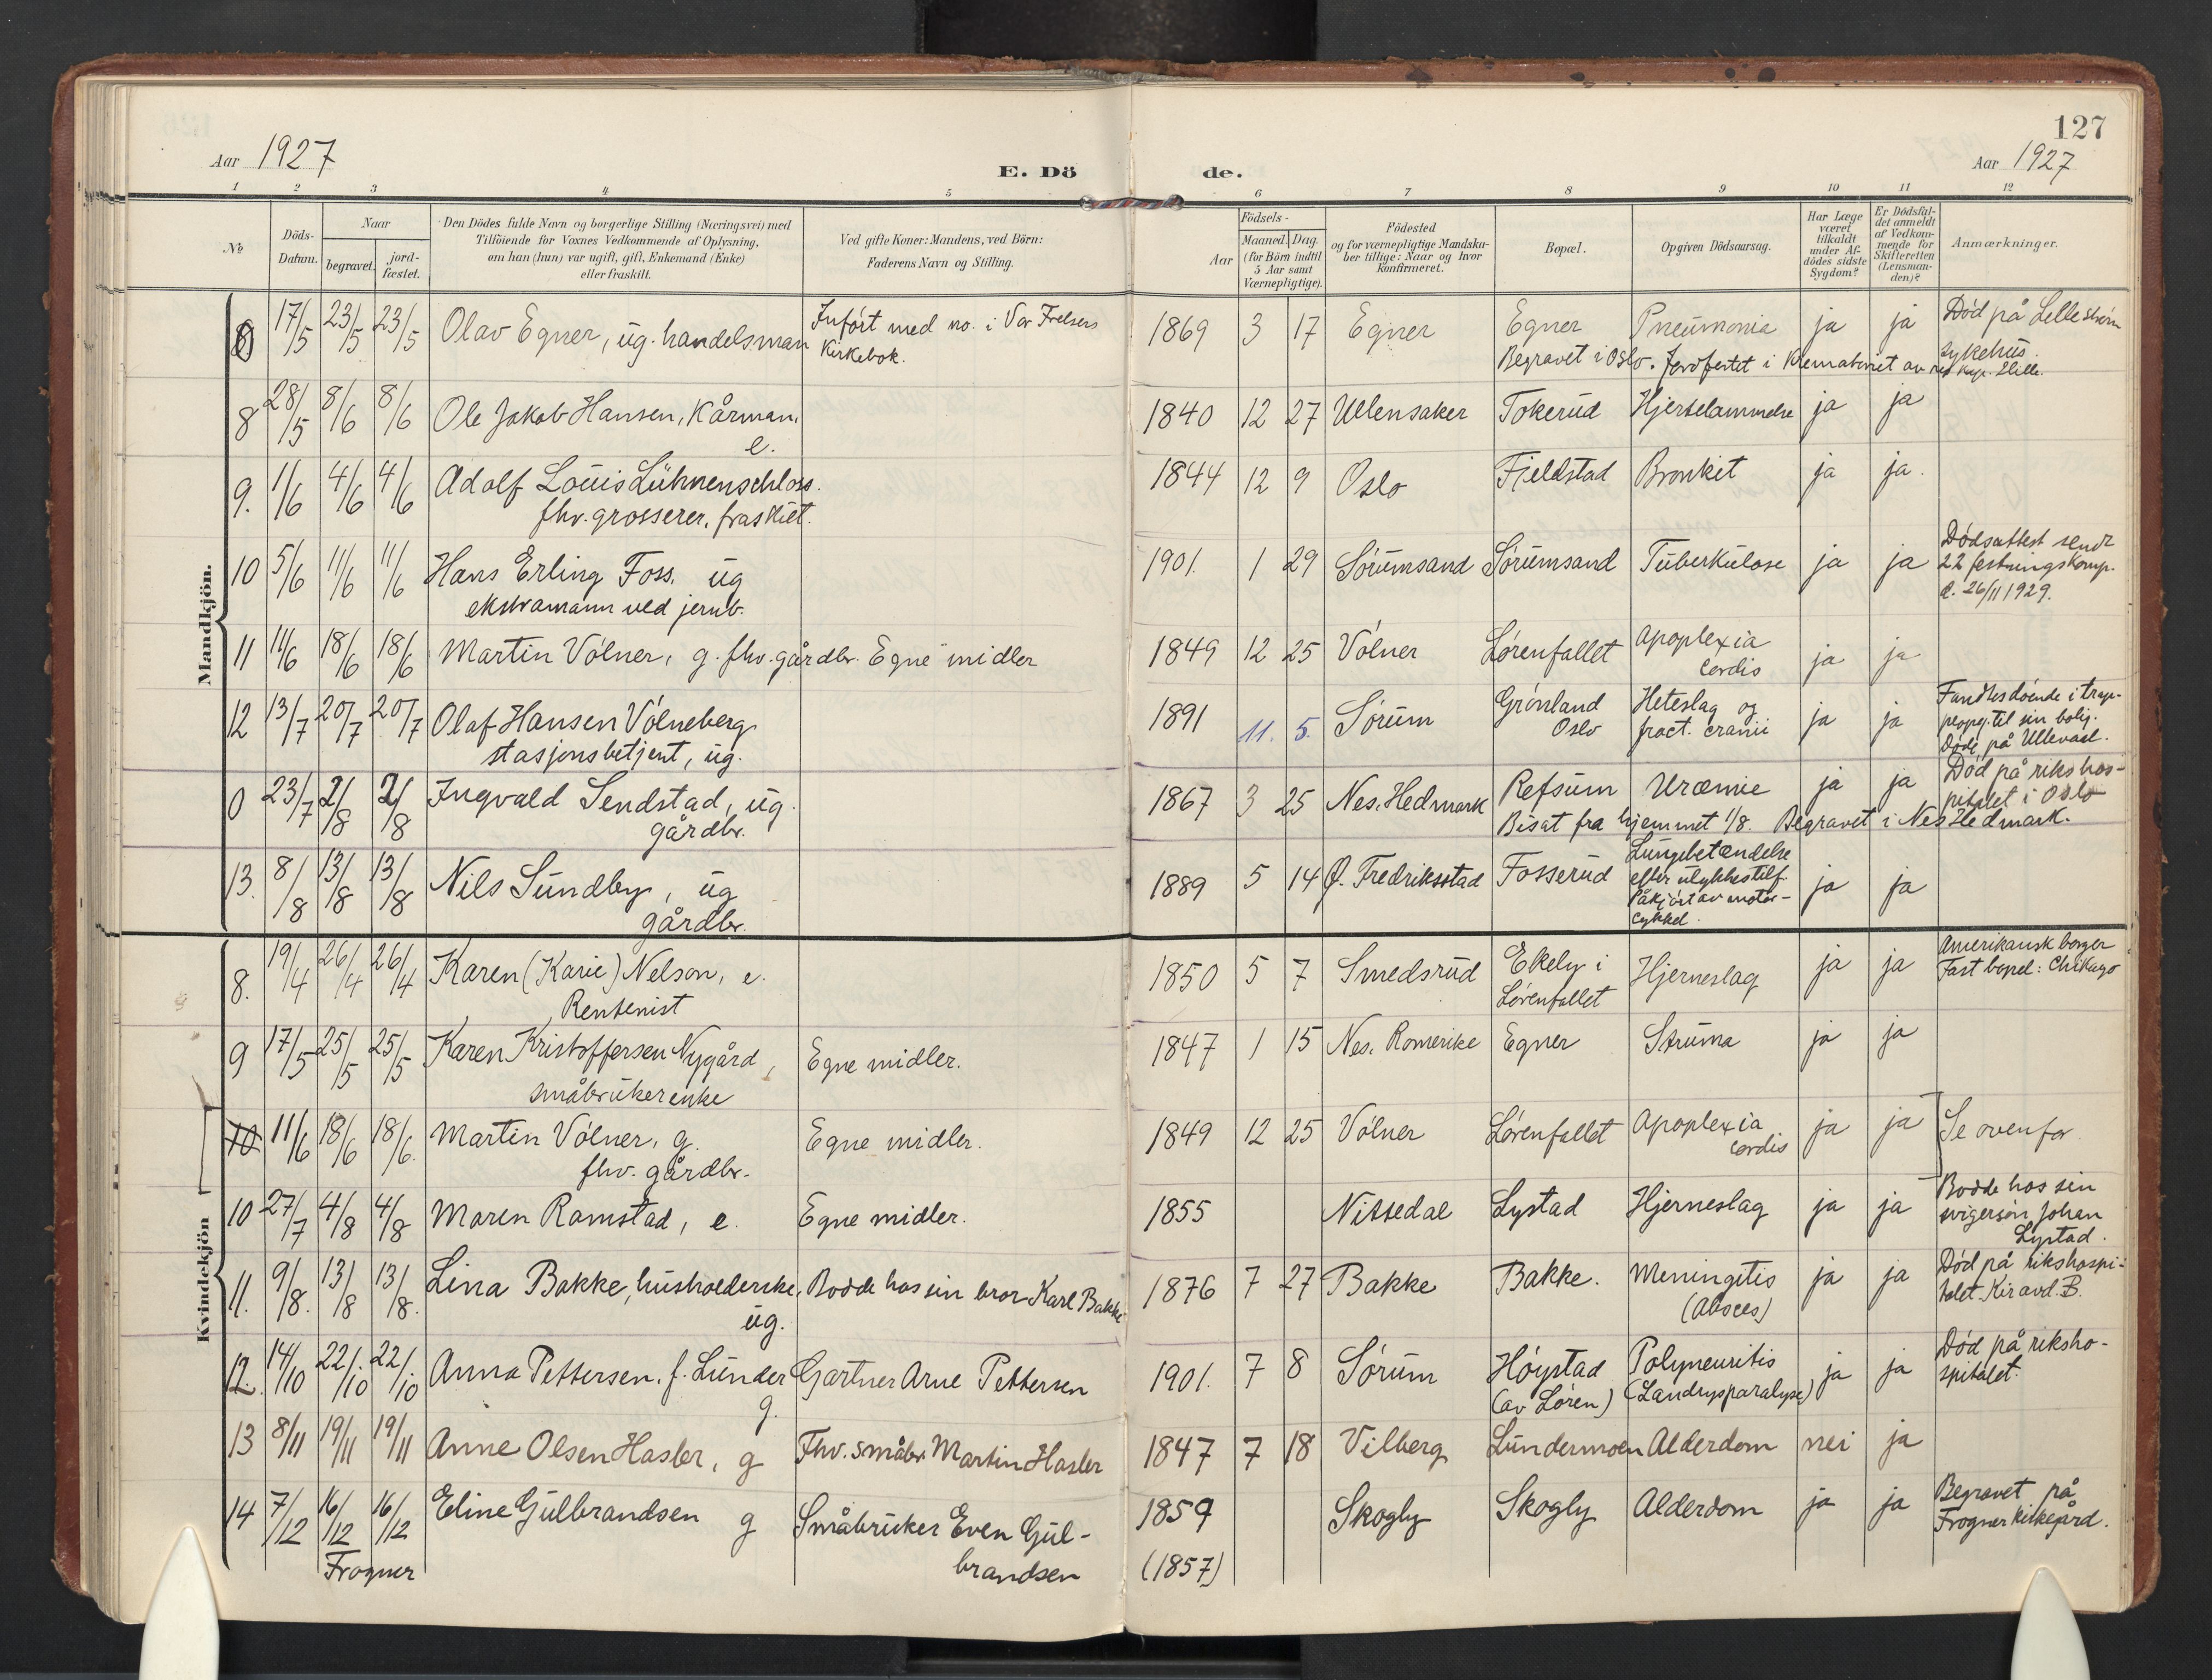 127
Aar 1927
E. Dö de.
Aar 1927
1 2 3 4 5 6 7 8 9 10 11 12
№
Döds-
Datum.
Naar
begravet.
jord-
fæstet.
Den Dödes fulde Navn og borgerlige Stilling (Næringsvei) med
Tilföiende for Voxnes Vedkommende af Oplysning,
om han (hun) var ugift, gift, Enkemand (Enke)
eller fraskilt.
Ved gifte Koner: Mandens, ved Börn:
Faderens Navn og Stilling.
Födsels-
Aar
Maaned. Dag.
(for Börn indtil
5 Aar samt
Værnepligtige).
Födested
og for værnepligtige Mandska-
ber tillige: Naar og hvor
Konfirmeret.
Bopæl.
Opgiven Dödsaarsag.
Har Læge
været
tilkaldt
under Af-
dödes sidste
Sygdom?
Er Dödsfal-
det anmeldt
af Vedkom-
mende for
Skifteretten
(Lensman-
den)?
Anmærkninger.
Mandkjön.
17/5 23/5 23/5 Olav Egner, ug. handelsman
Infört med no. i Vor Frelsers
Kirkebok.
1869 3 17 Egner Egner Pneumonia ja ja Död på Lelleström
sykehus.
Begravet i Oslo. Jordfestet i Krematoriet av res. kap. Hille.
8 28/5 8/6 8/6 Ole Jakob Hansen, Kårman,
e.
1840 12 27 Ullensaker Tokerud Hjertelammelse ja ja
9. 1/6 4/6 4/6 Adolf Louis Lühnenschloss.
fhv. grosserer, fraskilt.
1844 12 9 Oslo Fjeldstad Bronkit ja ja.
10 5/6 11/6 11/6 Hans Erling Foss, ug
ekstramann ved jernb.
1901. 1 29 Sörumsand Sörumsand Tuberkulose ja ja
Dödsattest sendt
22 festningskomp.
d. 26/11 1929.
11 11/6 18/6 18/6 Martin Völner, g. fhv. gårdbr. Egne midler
1849 12 25 Völner Lörenfallet Apoplexia
cordis ja ja
12 13/7 20/7 20/7 Olaf Hansen Völneberg
stasjonsbetjent, ug.
1891 11. 5. Sörum Grönland
Oslo
Heteslag og
fract. cranii ja ja
Fandtes döende i trap-
peopg. til sin bolig.
Döde på Ullevaal.
0 23/7 2/8 2/8 Ingvald Sendstad, ug.
gårdbr.
1867 3 25 Nes, Hedmark Refsum Uræmie ja ja
Död på rikshos-
pitalet i Oslo
Bisat fra hjemmet 1/8. Begravet i Nes Hedmark.
13. 8/8 13/8 13/8 Nils Sundby, ug
gårdbr.
1889 5 14 Ø. Fredriksstad Fosserud
Lungebetændelse
efter ulykkestilf.
Påkjört av motor-
cykkel. ja ja
Kvindekjön
8. 19/4 26/4 26/4 Karen (Karie) Nelson, e.
Rentenist
1850 5 7 Smedsrud Ekely i
Lörenfallet Hjerneslag ja ja
Amerikansk borger
Fast bopel: Chikago
9 17/5 25/5 25/5 Karen Kristoffersen Nygård,
småbrukerenke
Egne midler.
1847 1 15 Nes. Romerike Egner Struma ja ja
10 11/6 18/6 18/6. Martin Völner, g.
fhv. gårdbr.
Egne midler.
1849 12 25 Völner Lörenfallet Apoplexia
cordis ja ja Se ovenfor.
10 27/7 4/8 4/8 Maren Ramstad, e.
Egne midler.
1855 Nittedal Lystad Hjerneslag ja ja
Bodde hos sin
svigersön Johan
Lystad.
11. 9/8. 13/8 13/8. Lina Bakke, husholderske,
ug.
Bodde hos sin bror Karl Bakke
1876 7 27 Bakke Bakke. Meningitis
(Absces) ja ja
Död på rikshospi-
talet. Kir avd. B.
12. 14/10 22/10 22/10 Anna Pettersen. f. Lunder
g.
Gartner Arne Pettersen
1901. 7 8 Sörum Höystad
(av Lören)
Polyneuritis
(Landrysparalyse) ja ja
Död på riksho-
spitalet.
13 8/11 19/11 19/11 Anne Olsen Hasler, g
Fhv. småbr. Martin Hasler
1847 7 18 Vilberg Lundermoen Alderdom nei ja
14 7/12 16/12 16/12 Eline Gulbrandsen g
Frogner
Småbruker Even Gul-
brandsen
1859
(1857)
Skogly Skogly Alderdom ja ja
Begravet på
Frogner kirkegård.